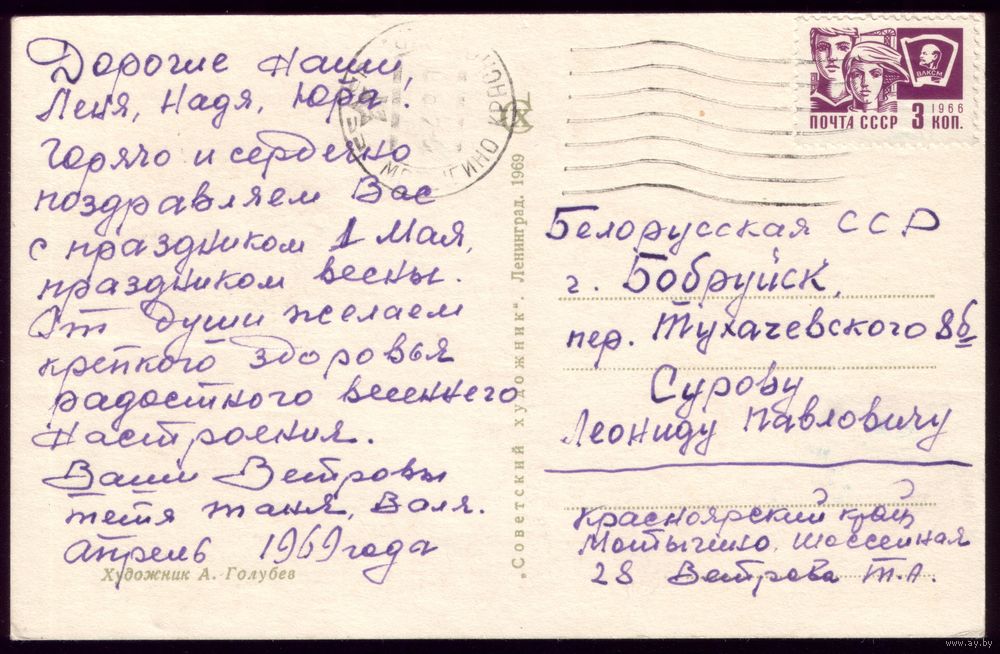 Дорогие наши,
Леня, Надя, Юра!
Горячо и сердечно
поздравляем Вас
с праздником 1 Мая,
праздником весны.
От души желаем
крепкого здоровья
радостного весеннего
настроения.
Ваши Ветровы
тетя Таня, Валя.
Апрель 1969 года
Художник А. Голубев
„Советский художник“. Ленинград. 1969
ВЛКСМ
1966
ПОЧТА СССР 3 КОП.
Белорусская ССР
г. Бобруйск,
пер. Тухачевского 8б
Сурову
Леониду Павловичу
Красноярский край
Мотыгино, Шоссейная
28 Ветрова Т.А.
www.ay.by